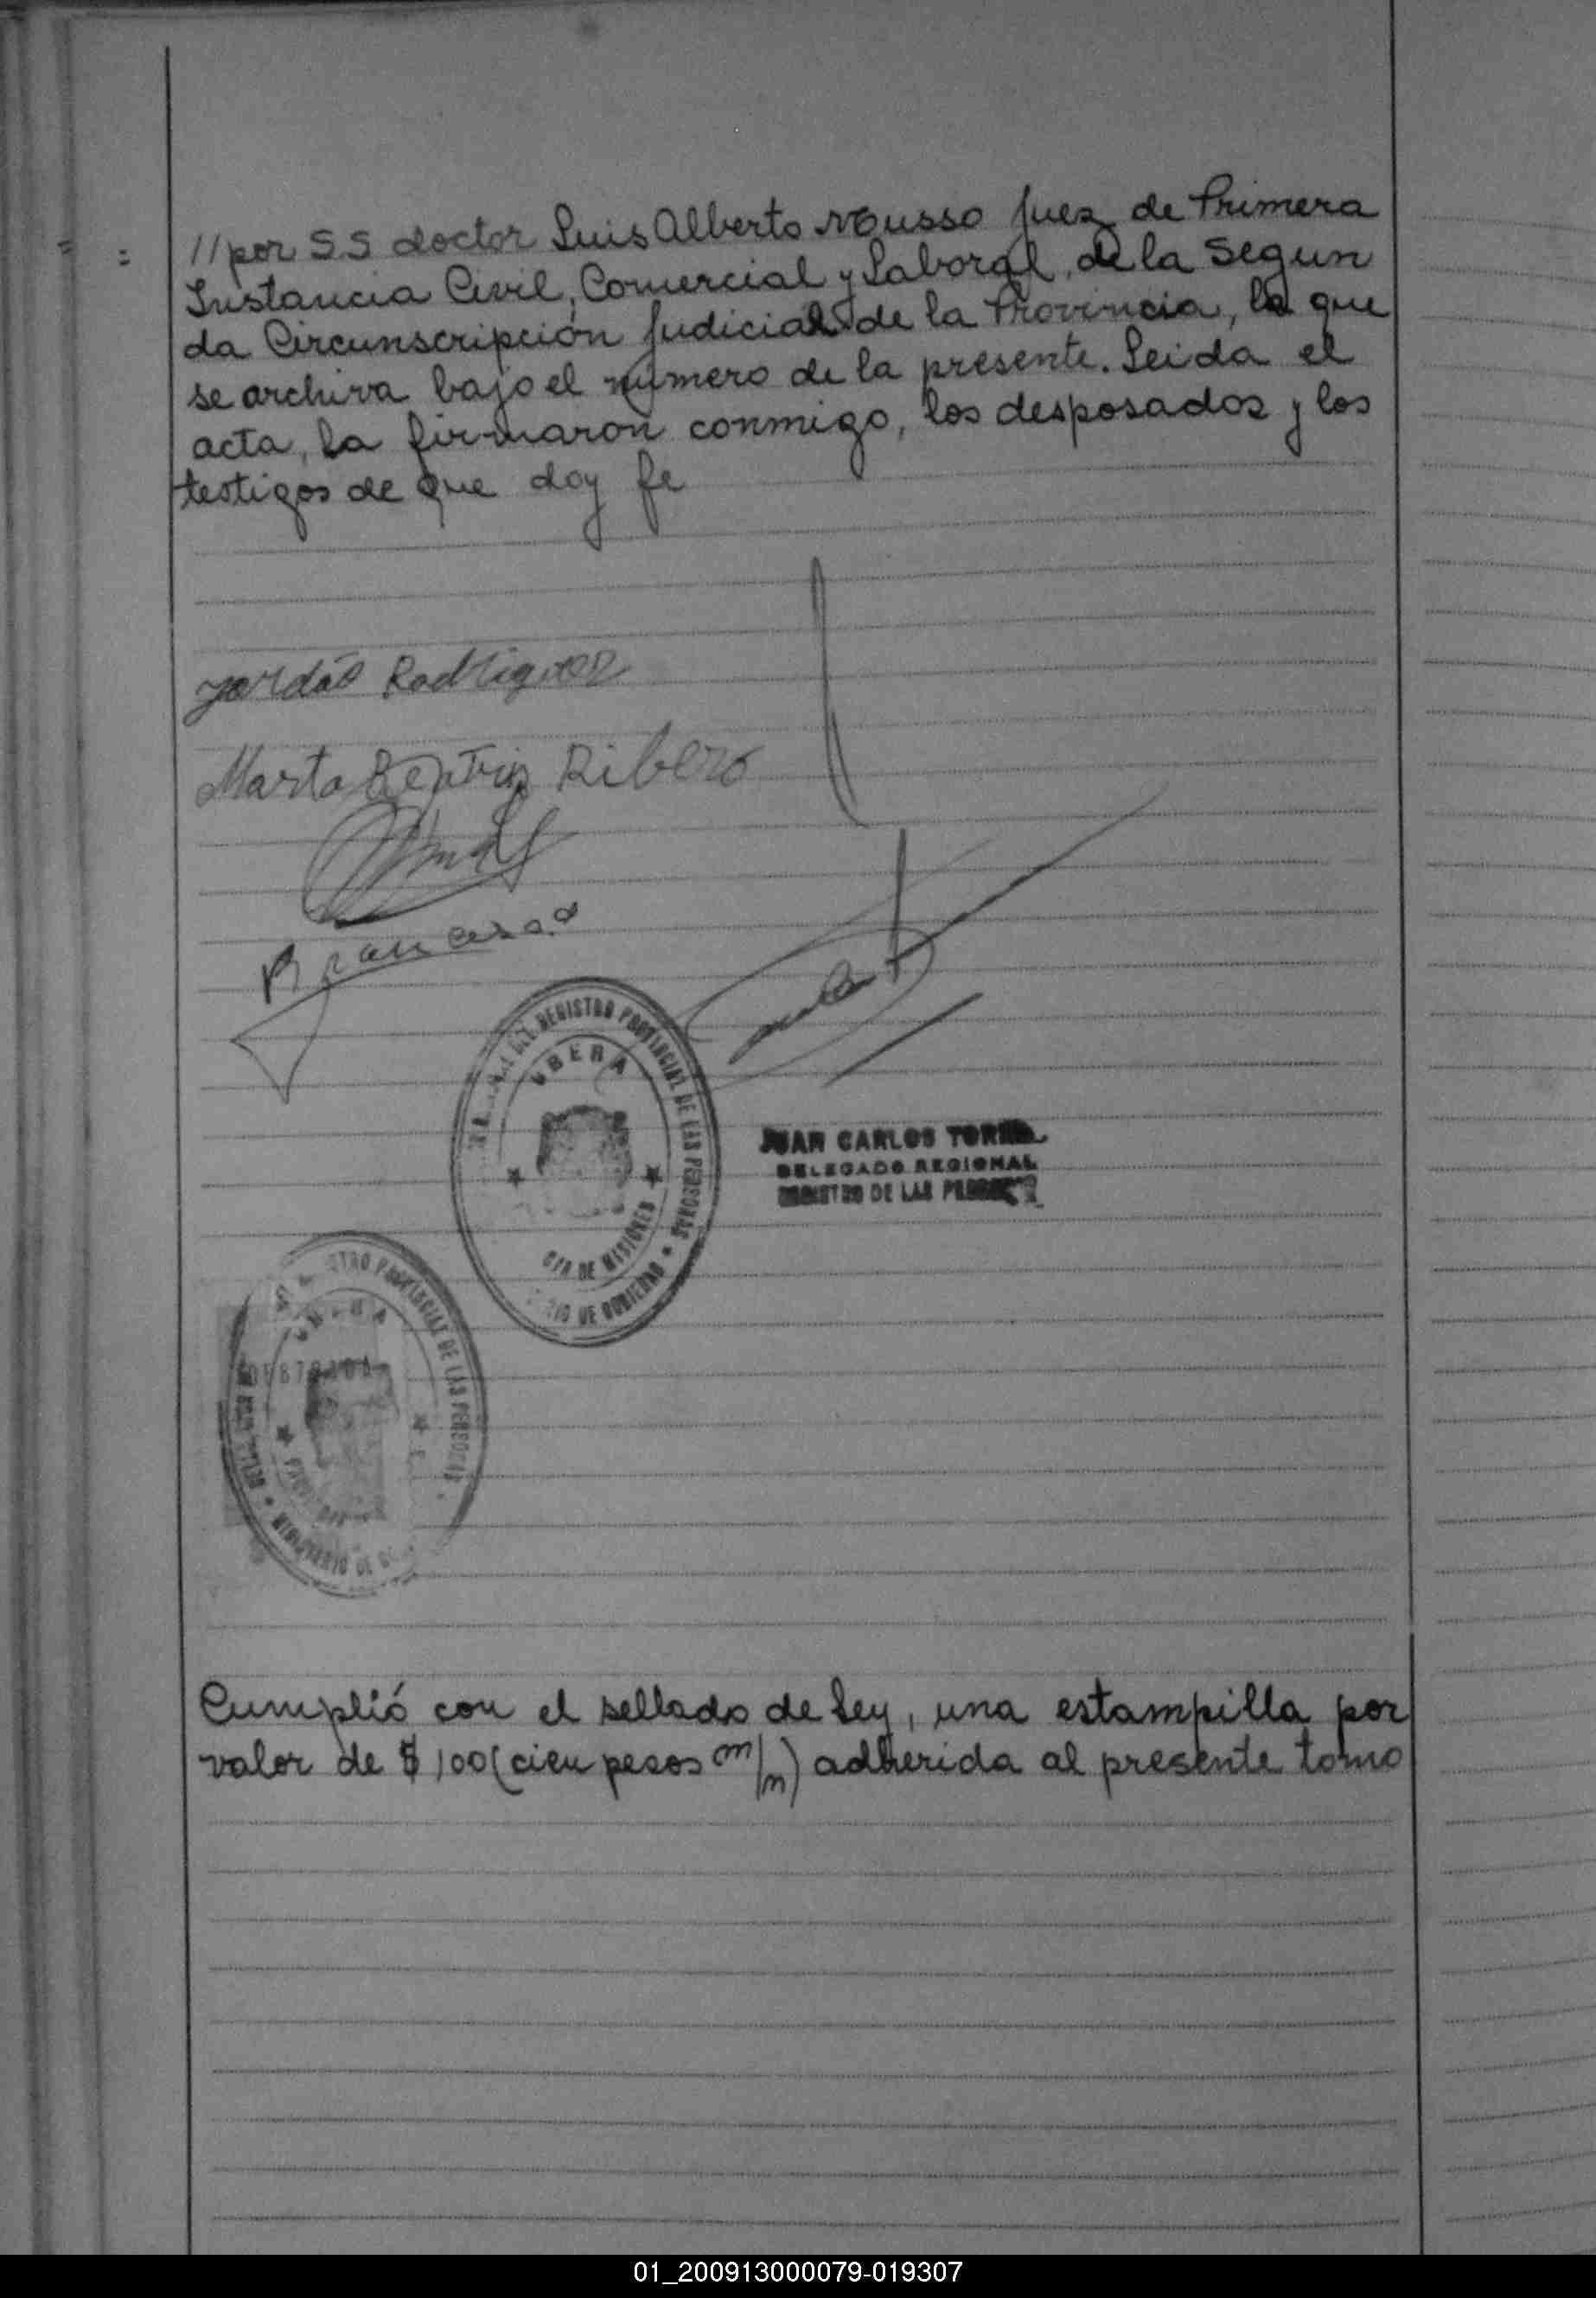 // por S.S doctor Luis Alberto Musso Juez de Primera
Instancia Civil, Comercial y Laboral, de la Segun
da Circunscripción Judicial de la Provincia, la que
se archiva bajo el numero de la presente. Leida el
acta, la firmaron conmigo, los desposados y los
testigos de que doy fe
Jordão Rodriguez
Marta Beatriz Ribero
DEL REGISTRO PROVINCIAL DE LAS PERSONAS
OBERA
CIA DE MISIONES
RIO DE GOBIERNO
JUAN CARLOS
DELEGADO REGIONAL
REGISTRO DE LAS PERSONAS
TRO PROVINCIAL DE LAS PERSONAS
MINISTERIO DE
Cumplió con el sellado de Ley, una estampilla por
valor de $ 100 (cien pesos m/n) adherida al presente tomo
01_200913000079-019307